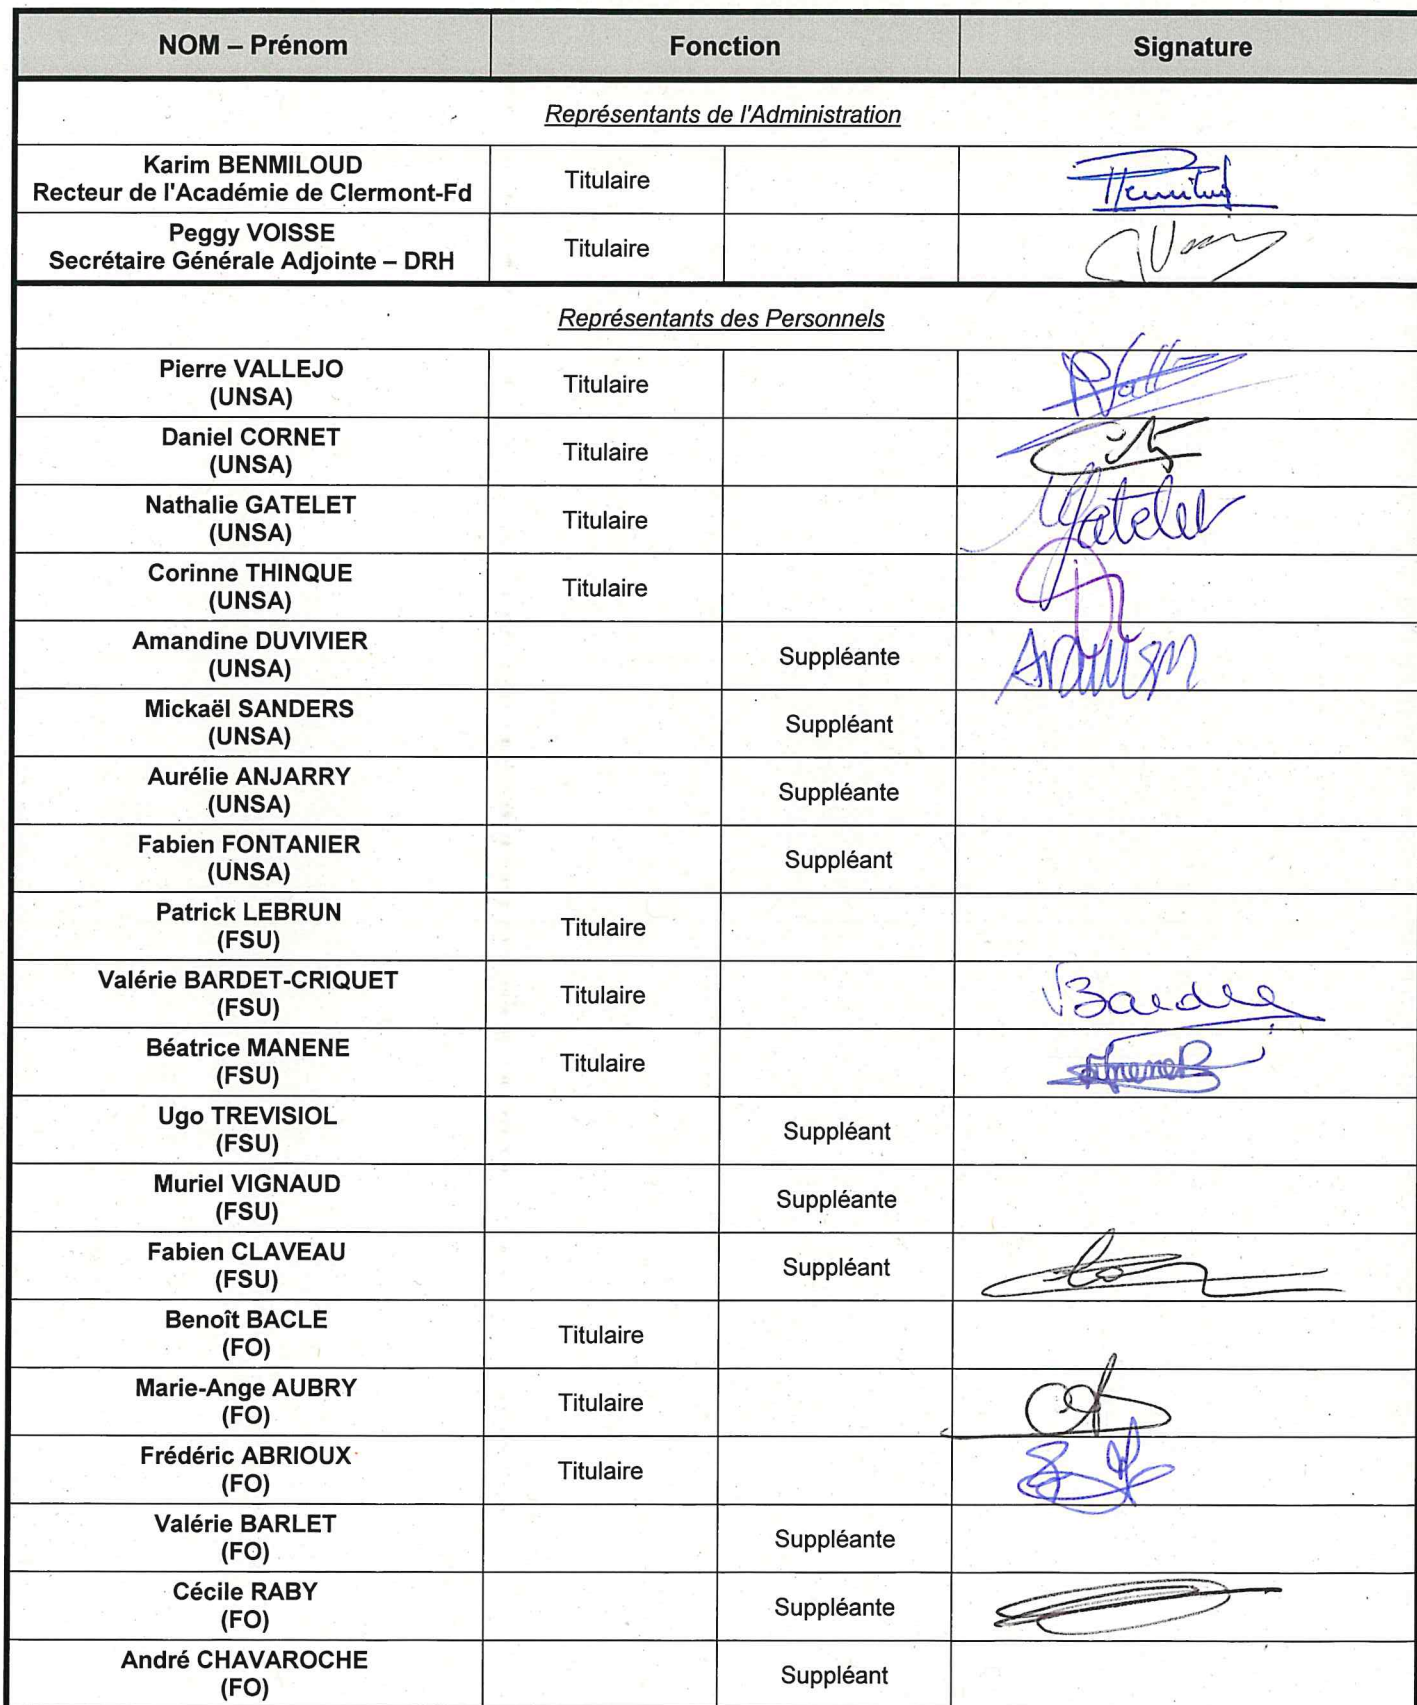 NOM – Prénom Fonction Signature
Représentants de l'Administration
Karim BENMILOUD
Recteur de l'Académie de Clermont-Fd
Titulaire
Peggy VOISSE
Secrétaire Générale Adjointe – DRH
Titulaire
Représentants des Personnels
Pierre VALLEJO
(UNSA)
Titulaire
Daniel CORNET
(UNSA)
Titulaire
Nathalie GATELET
(UNSA)
Titulaire
Gatelet
Corinne THINQUE
(UNSA)
Titulaire
Amandine DUVIVIER
(UNSA)
Suppléante
Mickaël SANDERS
(UNSA)
Suppléant
Aurélie ANJARRY
(UNSA)
Suppléante
Fabien FONTANIER
(UNSA)
Suppléant
Patrick LEBRUN
(FSU)
Titulaire
Valérie BARDET-CRIQUET
(FSU)
Titulaire
Béatrice MANENE
(FSU)
Titulaire
Ugo TREVISIOL
(FSU)
Suppléant
Muriel VIGNAUD
(FSU)
Suppléante
Fabien CLAVEAU
(FSU)
Suppléant
Benoît BACLE
(FO)
Titulaire
Marie-Ange AUBRY
(FO)
Titulaire
Frédéric ABRIOUX
(FO)
Titulaire
Valérie BARLET
(FO)
Suppléante
Cécile RABY
(FO)
Suppléante
André CHAVAROCHE
(FO)
Suppléant